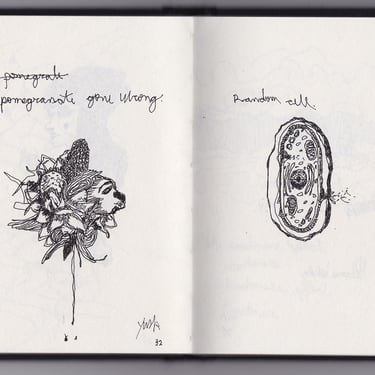 pomegrate
pomegranate gone wrong.
Random cell.
32